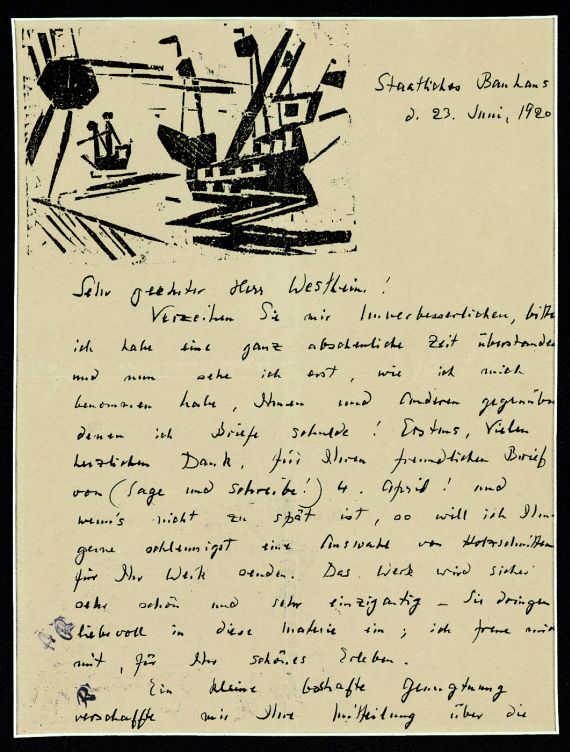 Staatliches Bauhaus
d. 23. Juni, 1920
Sehr geehrter Herr Westheim!
Verzeihen Sie mir Unverbesserlichen, bitte
ich habe eine ganz abscheuliche Zeit überstanden
und nun sehe ich erst, wie ich mich
benommen habe, Ihnen und Anderen gegenüber
denen ich Briefe schulde! Erstens, vielen
herzlichen Dank, für Ihren freundlichen Brief
von (sage und schreibe!) 4. April! und
wenn's nicht zu spät ist, so will ich Ihnen
gerne schleunigst eine Auswahl von Holzschnitten
für Ihr Werk senden. Das Werk wird sicher
sehr schön und sehr einzigartig – Sie dringen
liebevoll in diese Materie ein; ich freue mich
mit, für Ihr schönes Erleben.
Ein kleine boshafte Genugtuung
verschaffte mir Ihre Mitteilung über die